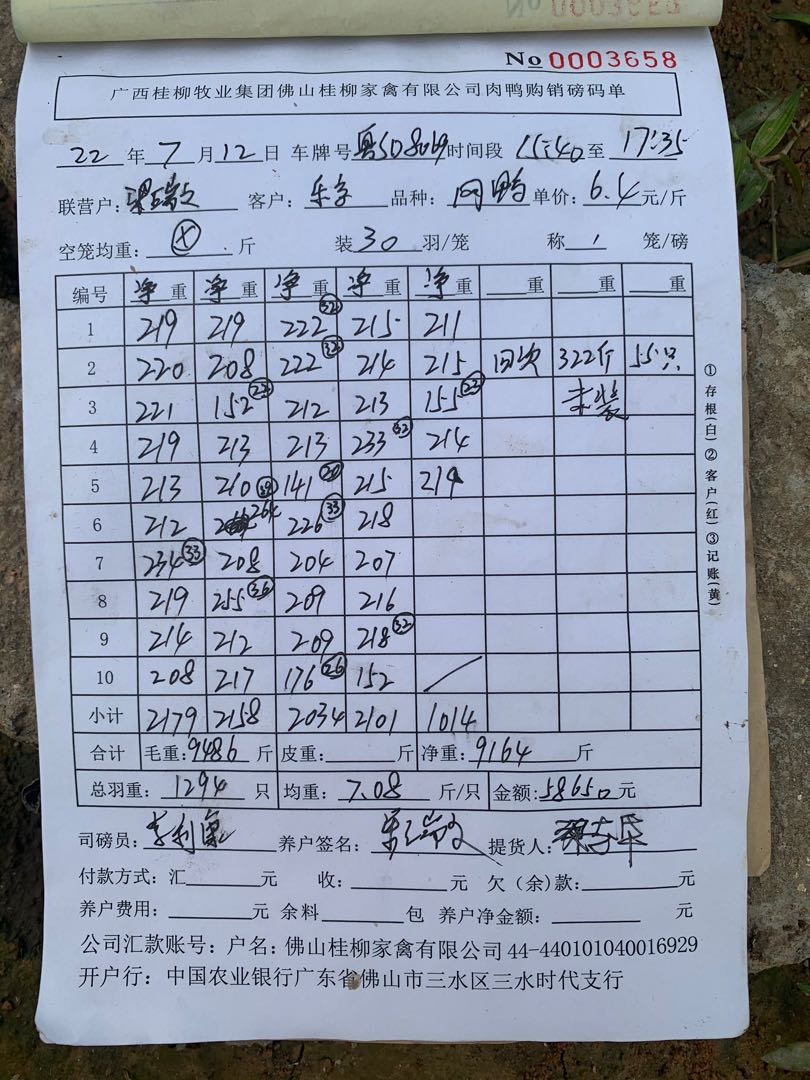 No 0003657
No 0003658
广西桂柳牧业集团佛山桂柳家禽有限公司肉鸭购销磅码单
22 年 7 月 12 日 车牌号 时间段 15:40 至 17:35
联营户: 客户: 乐宇 品种: 肉鸭 单价: 6.4 元/斤
空笼均重: X 斤 装 30 羽/笼 称 1 笼/磅
编号 净重 净重 净重 净重 净重 重 重 重
1 219 219 222 32 215 211
2 220 208 222 32 214 215 回次 322斤 55只
3 221 152 22 212 213 155 22 未装
4 219 213 213 233 32 214
5 213 210 141 20 215 219
6 212 264 226 33 218
7 234 33 208 204 207
8 219 255 36 209 216
9 214 212 209 218 32
10 208 217 176 26 152
小计 2179 2158 2034 2101 1014
合计 毛重: 9486 斤 皮重: 斤 净重: 9164 斤
总羽重: 1294 只 均重: 7.08 斤/只 金额: 58650 元
司磅员: 李利 养户签名: 提货人:
付款方式: 汇 元 收: 元 欠(余)款: 元
养户费用: 元 余料 包 养户净金额: 元
公司汇款账号: 户名: 佛山桂柳家禽有限公司 44-440101040016929
开户行: 中国农业银行广东省佛山市三水区三水时代支行
①存根(白)②客户(红)③记账(黄)